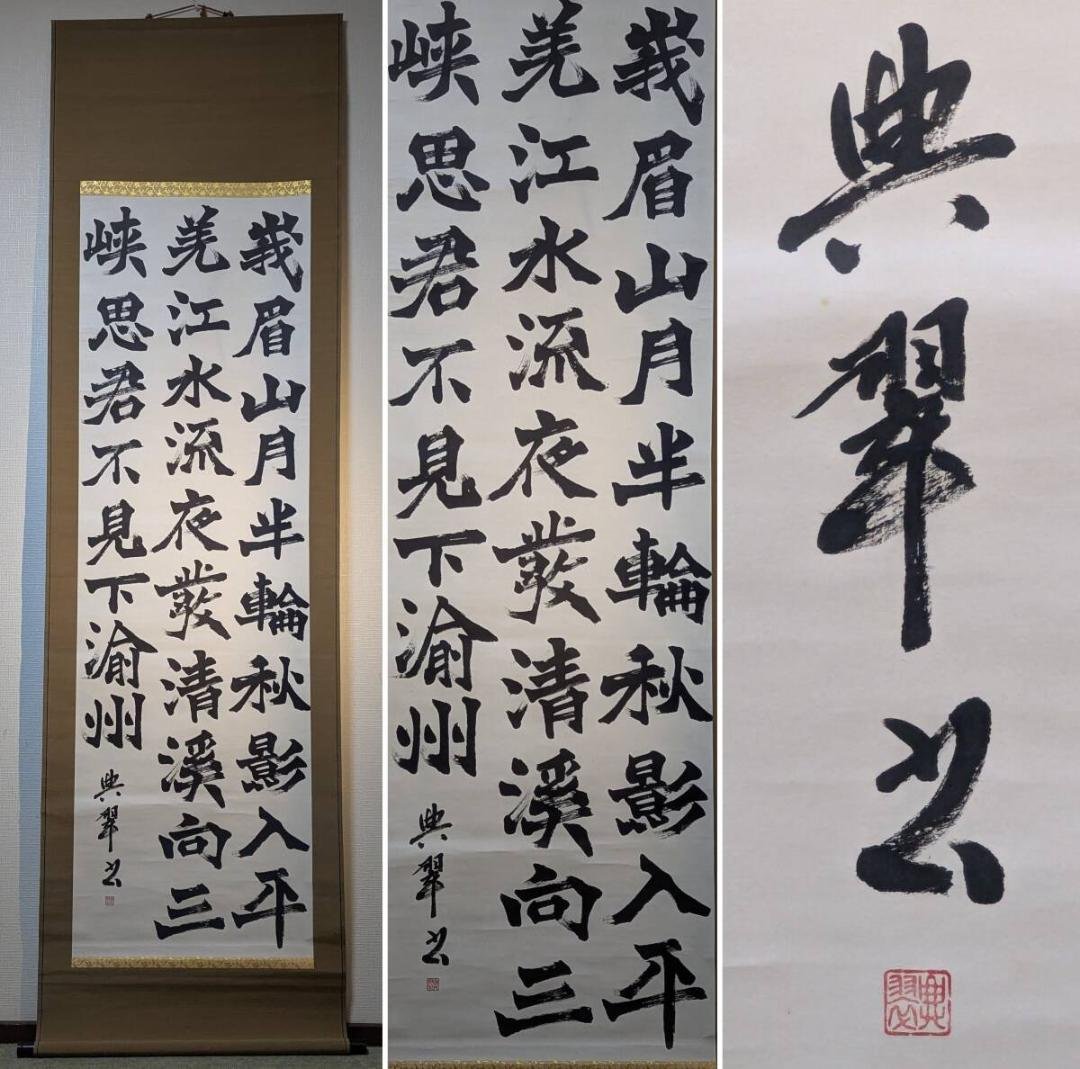 峩眉山月半輪秋影入平
羌江水流夜發清溪向三
峽思君不見下渝州
典翠书
峩眉山月半輪秋影入平
羌江水流夜發清溪向三
峽思君不見下渝州
典翠书
典翠书
典翠